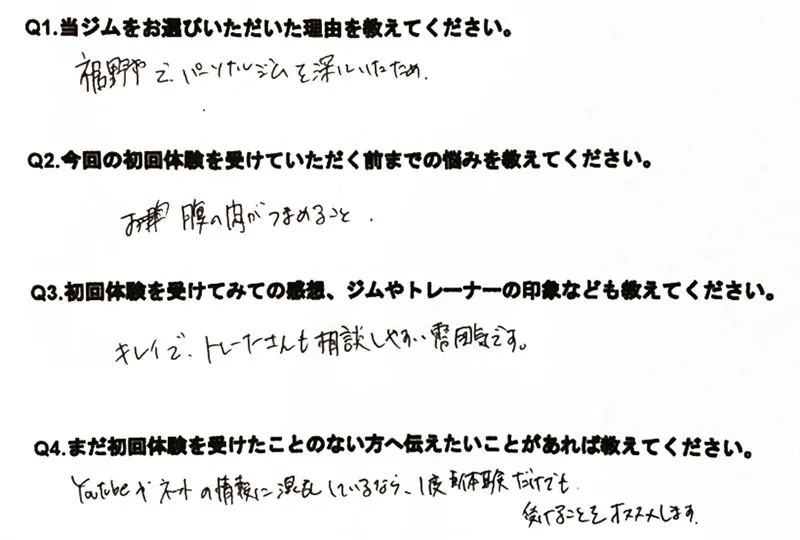 Q1.当ジムをお選びいただいた理由を教えてください。
裾野でパーソナルジムを探していたため.
Q2.今回の初回体験を受けていただく前までの悩みを教えてください。
お腹の肉がつまめること.
Q3.初回体験を受けてみての感想、ジムやトレーナーの印象なども教えてください。
キレイで、トレーナーさんも相談しやすい雰囲気です。
Q4.まだ初回体験を受けたことのない方へ伝えたいことがあれば教えてください。
Youtubeやネットの情報に混乱しているなら、1度体験だけでも
受けることをオススメします.